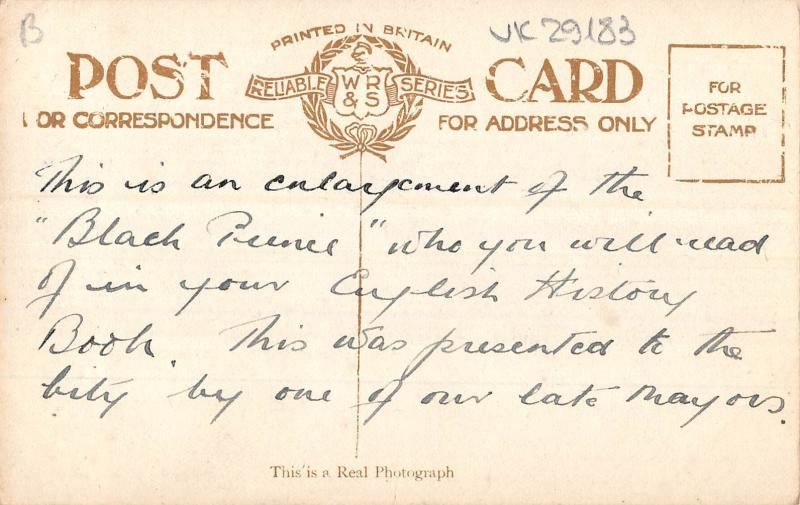 B
UK 29183
PRINTED IN BRITAIN
POST CARD
RELIABLE WR & S SERIES
FOR CORRESPONDENCE
FOR ADDRESS ONLY
FOR
POSTAGE
STAMP
This is an enlargement of the
"Black Prince" who you will read
of in your English History
Book. This was presented to the
City by one of our late Mayors.
This is a Real Photograph